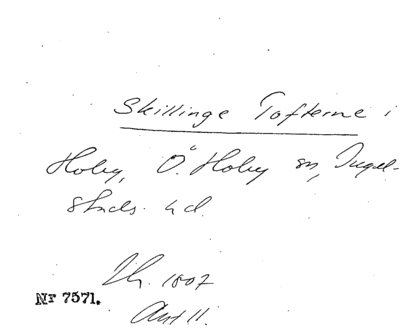 Skillinge Tofterne i
Hoby, Ö. Hoby sn, Ingel-
stads hd.
Lh. 1807
Akt 11.
Nr 7571.